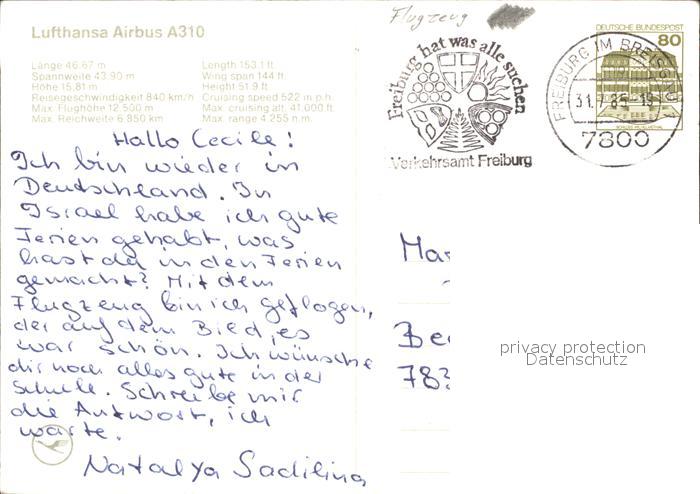 Flugzeug
Lufthansa Airbus A310
Länge 46.67 m
Spannweite 43.90 m
Höhe 15,81 m
Reisegeschwindigkeit 840 km/h
Max. Flughöhe 12.500 m
Max. Reichweite 6.850 km
Length 153.1 ft
Wing span 144 ft.
Height 51.9 ft.
Cruising speed 522 m.p.h.
Max. cruising alt. 41.000 ft.
Max. range 4.255 n.m.
Freiburg hat was alle suchen
Verkehrsamt Freiburg
DEUTSCHE BUNDESPOST
80
FREIBURG IM BREISGAU
31.7.85-19
7800
Hallo Cecile!
Ich bin wieder in
Deutschland. In
Israel habe ich gute
Ferien gehabt, was
hast du in den Ferien
gemacht? Mit dem
Flugzeug bin ich geflogen,
der auf dem Bied, es
war schön. Ich wünsche
dir noch alles gute in der
Schule. Schreibe mir
die Antwort, ich
warte.
Natalya Sadilina
Mar
Be
78
privacy protection
Datenschutz